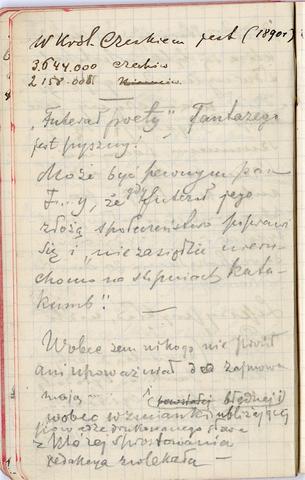 W Król. Czeskiem jest (1890 r.)
3.644.000 czechów
2.158.000
„Futerał poety" Tantazego
jest pyszny!
Może być pewnym pan
T...y, że gdy futerał jego
złożą społeczeństwo poprawi
się i „nie zasiędzie nieru-
chomo na stopniach kata-
kumb"!
Wobec żem nikogo nie prosił
ani upoważniał do zajmowa
mają
błędnej i
wobec wzmianki ubliżającej
drukowanego słowa
z której sprostowania
redakcya zwlekała —